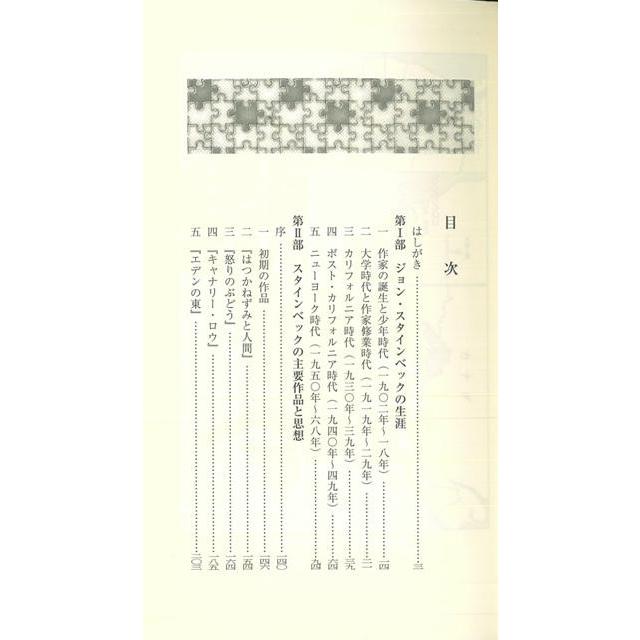 目次
はしがき……三
第Ⅰ部 ジョン・スタインベックの生涯
一 作家の誕生と少年時代(一九〇二年〜一八年)……一四
二 大学時代と作家修業時代(一九一九年〜二九年)……二一
三 カリフォルニア時代(一九三〇年〜三九年)……三九
四 ポスト・カリフォルニア時代(一九四〇年〜四九年)……六四
五 ニューヨーク時代(一九五〇年〜六八年)……九四
第Ⅱ部 スタインベックの主要作品と思想
序……一四〇
一 初期の作品……一四六
二 『はつかねずみと人間』……一五四
三 『怒りのぶどう』……一六四
四 『キャナリー・ロウ』……一八五
五 『エデンの東』……二〇三